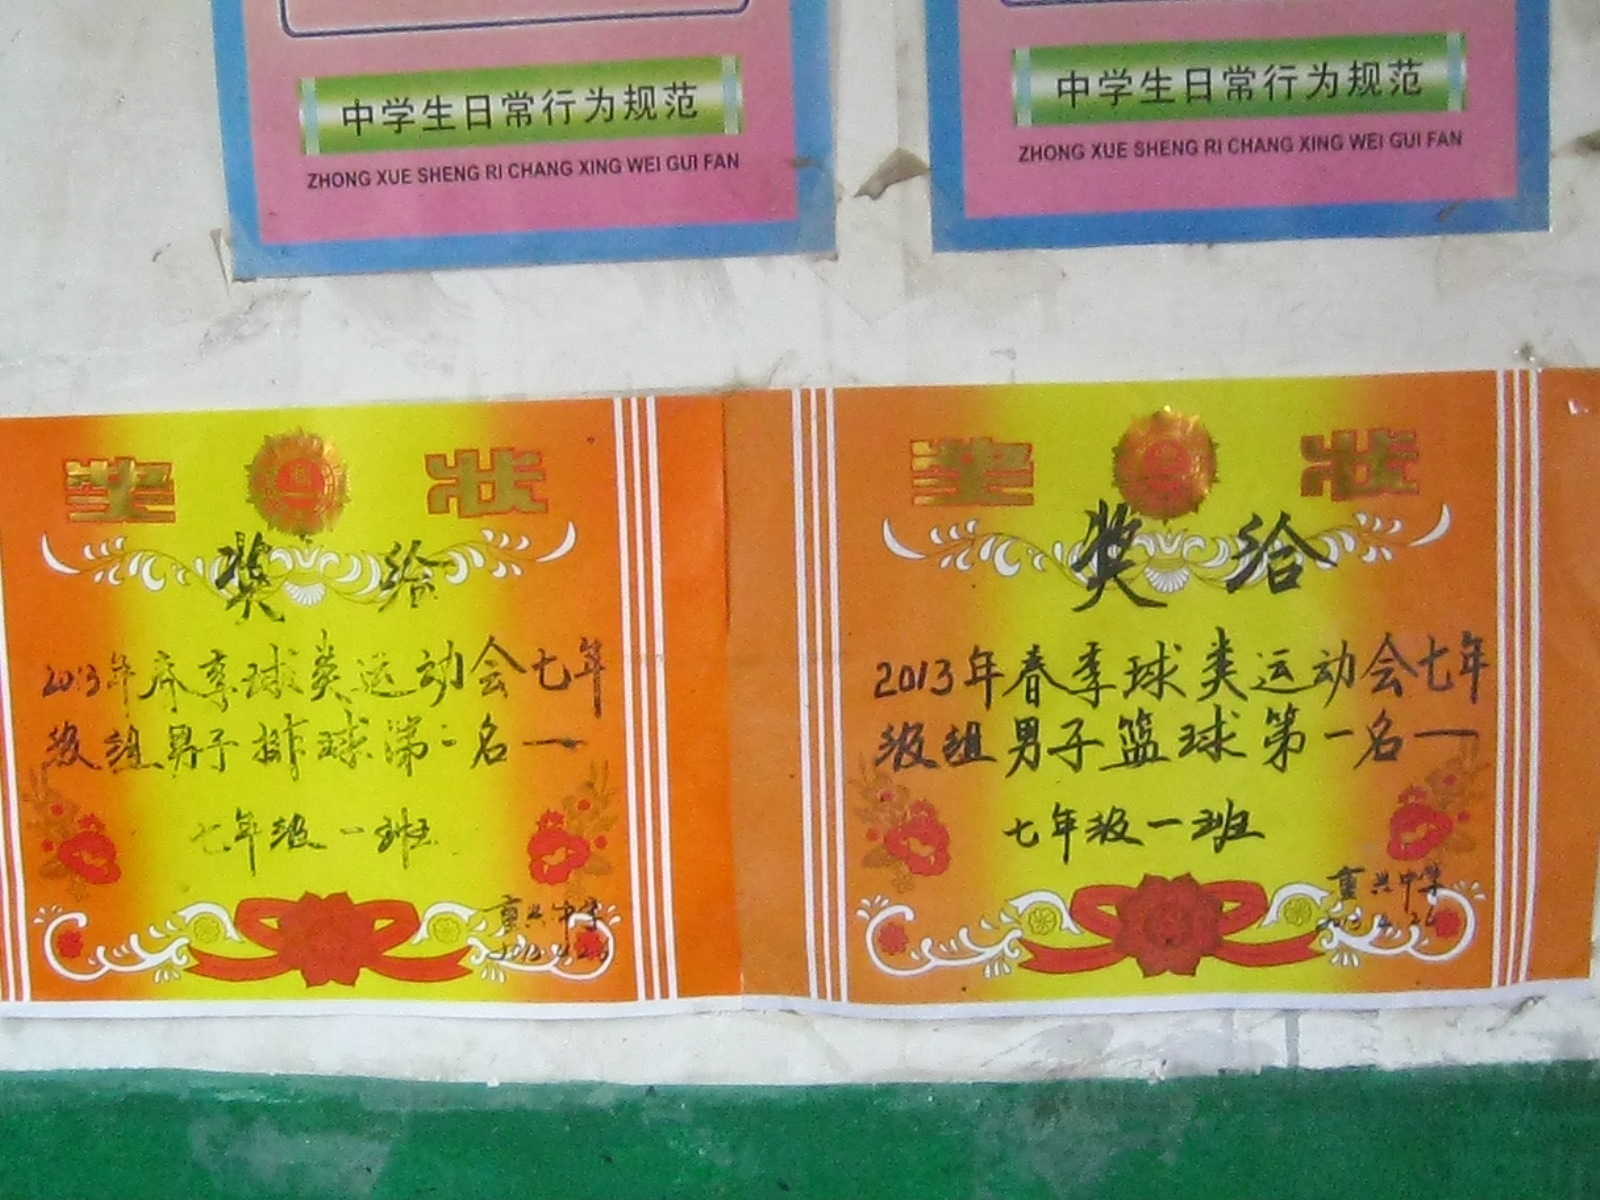 中学生日常行为规范
ZHONG XUE SHENG RI CHANG XING WEI GUI FAN
中学生日常行为规范
ZHONG XUE SHENG RI CHANG XING WEI GUI FAN
奖状
奖给
2013年春季球类运动会七年
级组男子排球第二名一
七年级一班
重兴中学
2013.4.26
奖状
奖给
2013年春季球类运动会七年
级组男子篮球第一名一
七年级一班
重兴中学
2013.4.26